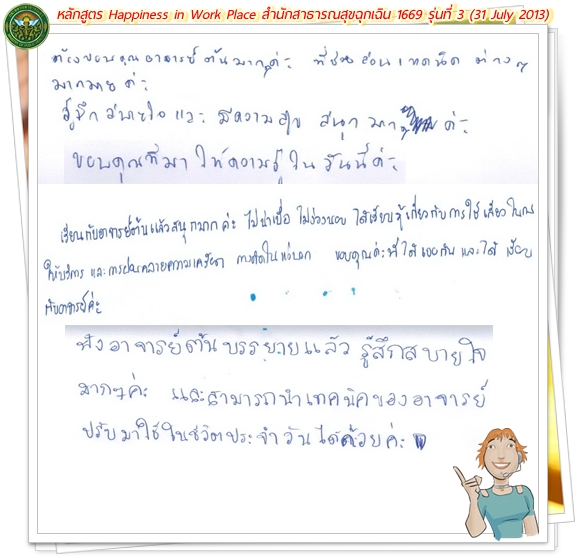 หลักสูตร Happiness in Work Place สำนักสาธารณสุขฉุกเฉิน 1669 รุ่นที่ 3 (31 July 2013)
ต้องขอบคุณอาจารย์ต้นมากค่ะ ที่ช่วยสอนเทคนิคต่างๆ
มากมายค่ะ
รู้สึกสบายใจและมีความสุข สนุกมาก ค่ะ
ขอบคุณที่มาให้ความรู้ในวันนี้ค่ะ
เรียนกับอาจารย์ต้นแล้วสนุกมากค่ะ ไม่น่าเบื่อ ไม่ง่วงนอน ได้เรียนรู้เกี่ยวกับการใช้เสียงใน
ให้บริการ และการผ่อนคลายความเครียด การคิดในแง่บวก ขอบคุณค่ะที่ได้เจอกันและได้เรียน
กับอาจารย์ค่ะ
ฟังอาจารย์ต้นบรรยายแล้ว รู้สึกสบายใจ
มากๆค่ะ และสามารถนำเทคนิคของอาจารย์
ปรับมาใช้ในชีวิตประจำวันได้ด้วยค่ะ